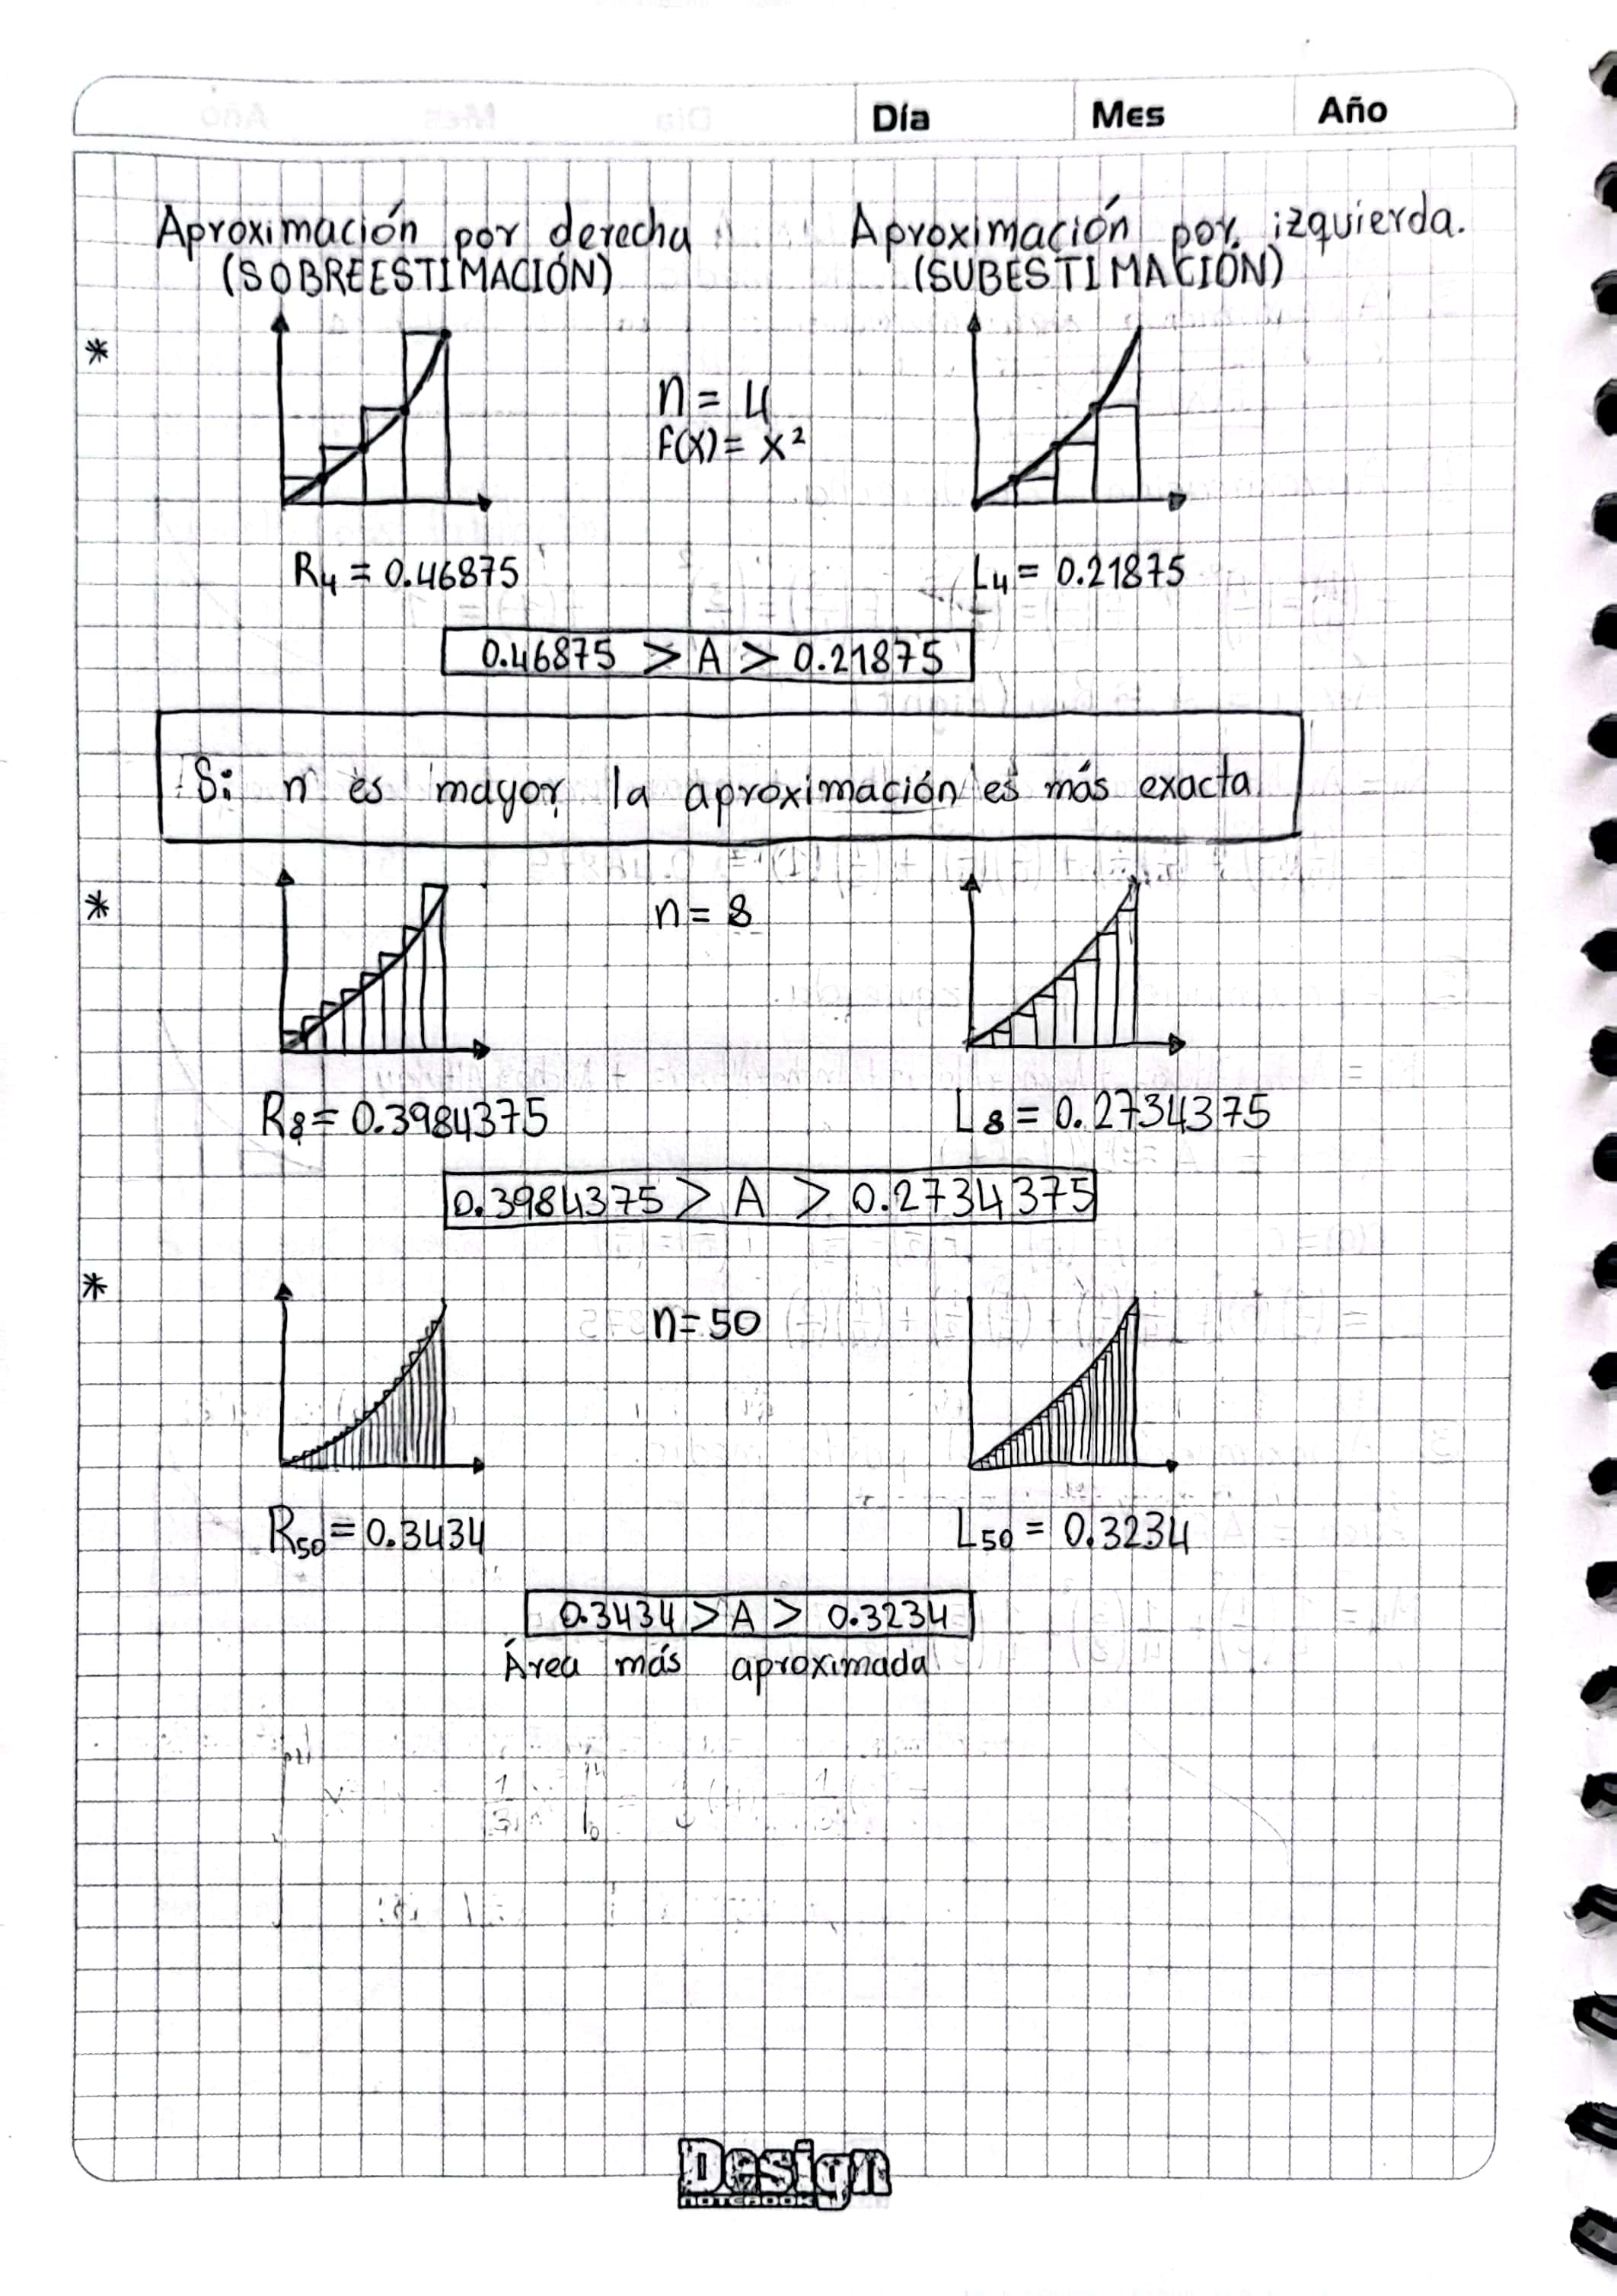 Día Mes Año
Aproximación por derecha
(SOBREESTIMACIÓN)
Aproximación por izquierda.
(SUBESTIMACIÓN)
*
n = 4
f(x) = x²
R4 = 0.46875
L4 = 0.21875
0.46875 > A > 0.21875
Si n es mayor, la aproximación es más exacta
*
n = 8
R8 = 0.3984375
L8 = 0.2734375
0.3984375 > A > 0.2734375
*
n = 50
R50 = 0.3434
L50 = 0.3234
0.3434 > A > 0.3234
Área más aproximada
Design
NOTEBOOK